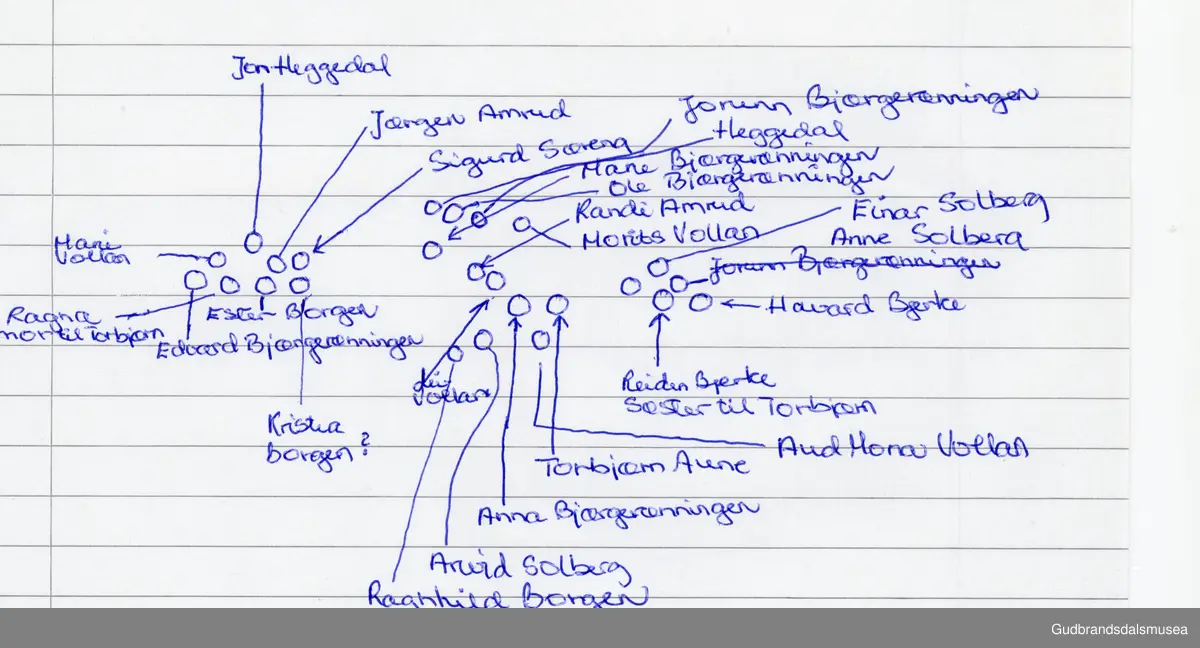 Jon Heggedal
Jørgen Amrud
Jorunn Bjørgerønningen
Heggedal
Sigurd Søreng
Mane Bjørgerønningen
Ole Bjørgerønningen
Randi Amrud
Morits Vollan
Einar Solberg
Anne Solberg
Jorunn Bjørgerønningen
Mari
Vollan
Håvard Bjerke
Ragna
mor til Torbjørn
Ester Borgen
Edvard Bjørgerønningen
Vollan
Reiden Bjerke
Søster til Torbjørn
Krista
borgen?
Aud Mona Vollan
Torbjørn Aune
Anna Bjørgerønningen
Arvid Solberg
Ragnhild Borgen
Gudbrandsdalsmusea